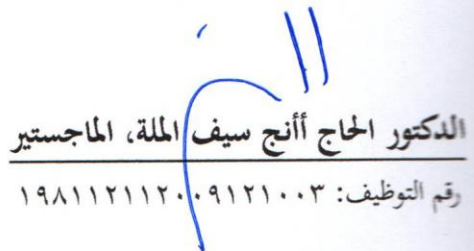 الدكتور الحاج أأنج سيف الملة، الماجستير
رقم التوظيف: ١٩٨١١٢١١٢٠٠٩١٢١٠٠٣